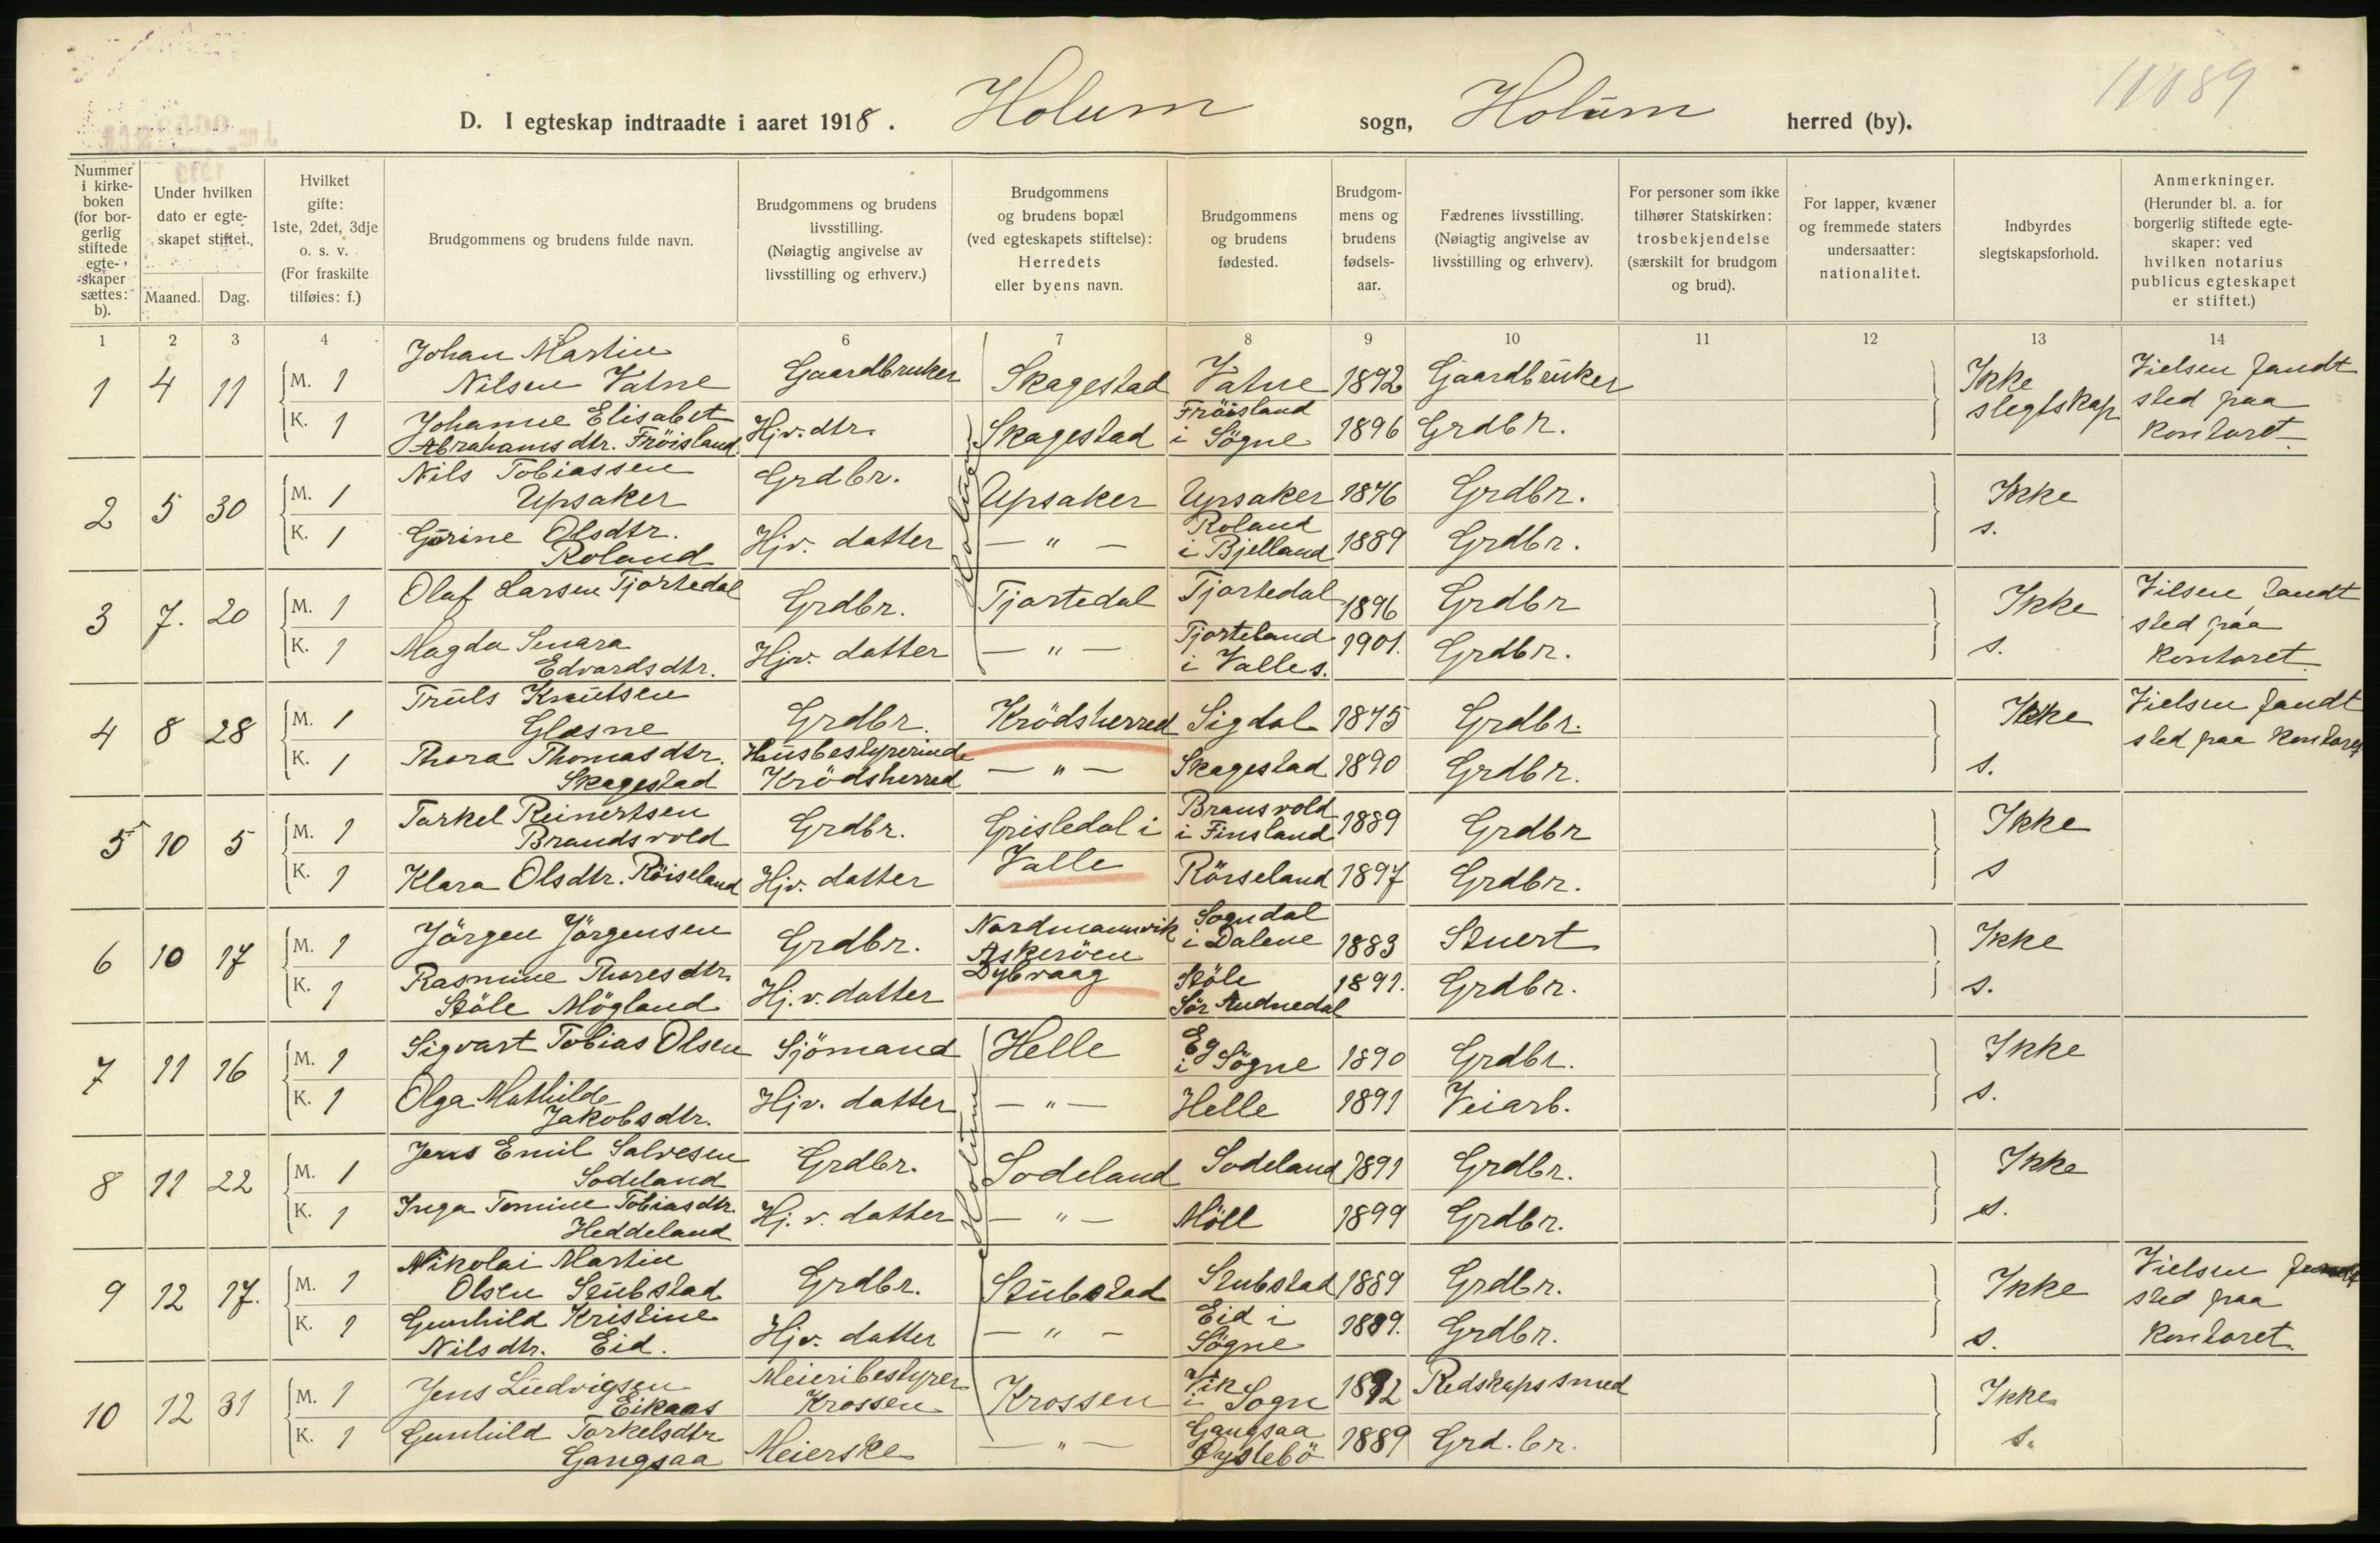 11089
D. I egteskap indtraadte i aaret 1918. Holum sogn, Holum herred (by).
Nummer i kirke-boken (for bor-gerlig stiftede egte-skaper sættes: b).
Under hvilken dato er egte-skapet stiftet.
Maaned. Dag.
Hvilket gifte: 1ste, 2det, 3dje o. s. v. (For fraskilte tilføies: f.)
Brudgommens og brudens fulde navn.
Brudgommens og brudens livsstilling. (Nøiagtig angivelse av livsstilling og erhverv.)
Brudgommens og brudens bopæl (ved egteskapets stiftelse): Herredets eller byens navn.
Brudgommens og brudens fødested.
Brudgom-mens og brudens fødsels-aar.
Fædrenes livsstilling. (Nøiagtig angivelse av livsstilling og erhverv).
For personer som ikke tilhører Statskirken: trosbekjendelse (særskilt for brudgom og brud).
For lapper, kvæner og fremmede staters undersaatter: nationalitet.
Indbyrdes slegtskapsforhold.
Anmerkninger. (Herunder bl. a. for borgerlig stiftede egte-skaper: ved hvilken notarius publicus egteskapet er stiftet.)
1 2 3 4 5 6 7 8 9 10 11 12 13 14
1 4 11 M. 1 Johan Martin Nilsen Vatne Gaardbruker Skagestad Vatne 1892 Gaardbruker Ikke slegtskap Vielsen fandt sted paa kontoret
K. 1 Johanne Elisabet Abrahamsdtr. Fröisland Hjv. dtr. Skagestad Fröisland i Sögne 1896 Grdbr.
Holum
2 5 30 M. 1 Nils Tobiassen Upsaker Grdbr. Upsaker Upsaker 1876 Grdbr. Ikke s.
K. 1 Gurine Olsdtr. Roland Hjv. datter — " — Roland i Bjelland 1889 Grdbr.
3 7. 20 M. 1 Olaf Larsen Tjortedal Grdbr. Tjortedal Tjortedal 1896 Grdbr Ikke s. Vilsen fandt sted paa kontoret
K. 1 Magda Senara Edvardsdtr. Hjv. datter — " — Tjorteland i Valle s. 1901. Grdbr.
4 8 28 M. 1 Truls Knutsen Glesne Grdbr. Krödsherred Sigdal 1875 Grdbr. Ikke s. Vielsen fandt sted paa kontoret
K. 1 Thora Thomasdtr. Skagestad Husbestyrerinde Krödsherred — " — Skagestad 1890 Grdbr.
5 10 5 M. 1 Torkel Reinertsen Brandsvold Grdbr. Grisledal i Valle Bransvold i Finsland 1889 Grdbr Ikke s
K. 1 Klara Olsdtr. Röiseland Hjv. datter Rörseland 1897 Grdbr.
6 10 17 M. 1 Jörgen Jörgensen Grdbr. Nordmannvik Askeröen Dybvaag Sogndal i Dalene 1883 Stuert Ikke s.
K. 1 Rasmine Tharesdtr. Stöle Mögland Hj.v. datter Stöle Sör Audnedal 1891. Grdbr.
7 11 16 M. 1 Sigvart Tobias Olsen Sjömand Helle Eg i Sögne 1890 Grdbr. Ikke s.
K. 1 Olga Mathilde Jakobsdtr. Hjv. datter — " — Helle 1891 Veiarb.
Holum
8 11 22 M. 1 Jens Emil Salvesen Sodeland Grdbr. Sodeland Sodeland 1891 Grdbr. Ikke s.
K. 1 Inga Tomine Tobiasdtr. Heddeland Hj.v. datter — " — Möll 1899 Grdbr.
9 12 17. M. 1 Nikolai Martin Olsen Stubstad Grdbr. Stubstad Stubstad 1889 Grdbr. Ikke s. Vielsen fandt sted paa kontoret
K. 1 Gunhild Kristine Nilsdtr. Eid. Hjv. datter — " — Eid i Sögne 1889. Grdbr.
10 12 31 M. 1 Jens Ludvigsen Eikaas Meieribestyrer Krossen Krossen Vik i Sogn 1892 Redskapssmed Ikke s.
K. 1 Gunhild Torkelsdtr Gangsaa Meierske — " — Gangsaa Öyslebö 1889 Grd.br.